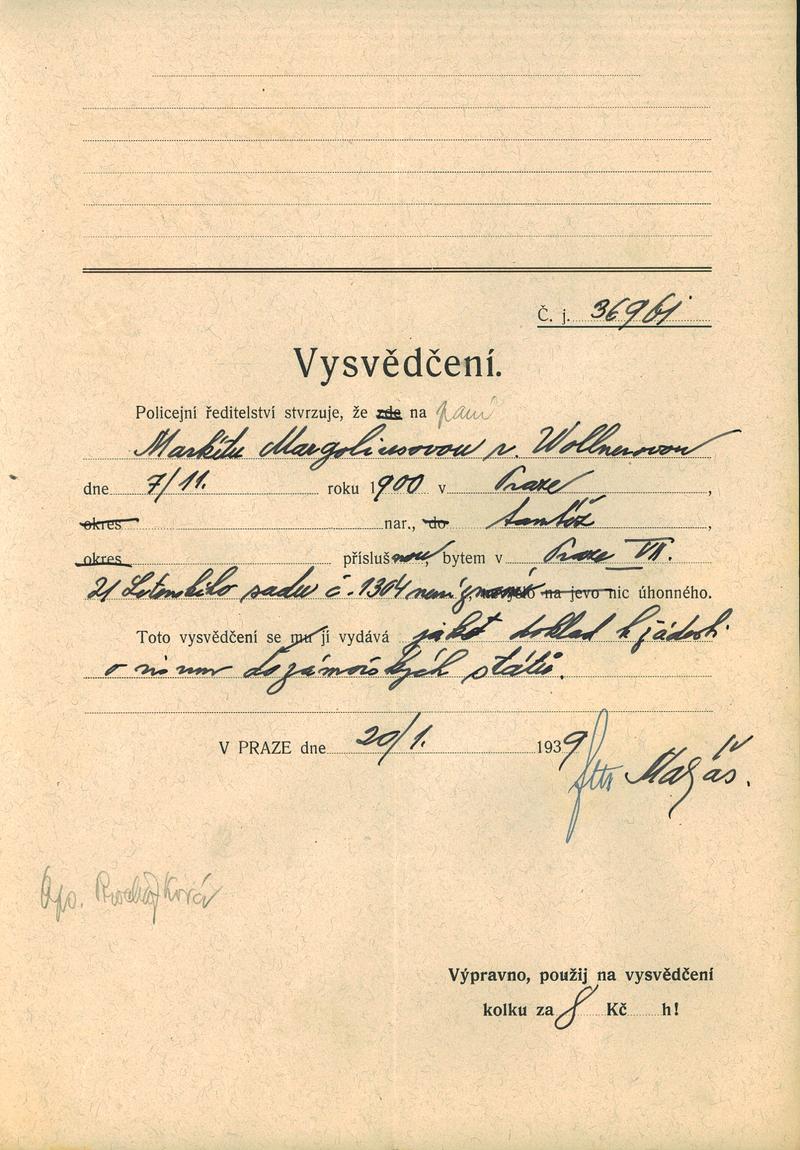 Č. j. 36961
Vysvědčení.
Policejní ředitelství stvrzuje, že zde na paní
Markétu Margoliusovou r. Wollnerovou
dne 7/11. roku 1900 v Praze,
okres nar., do tamtéž,
okres příslušnou, bytem v Praze VII.
21 Letenského sadu č. 1304 není na jevo nic úhonného.
Toto vysvědčení se mu jí vydává jakož doklad k žádosti
o do zámořských států.
V PRAZE dne 20/1. 1939
Výpravno, použij na vysvědčení
kolku za 8 Kč h!